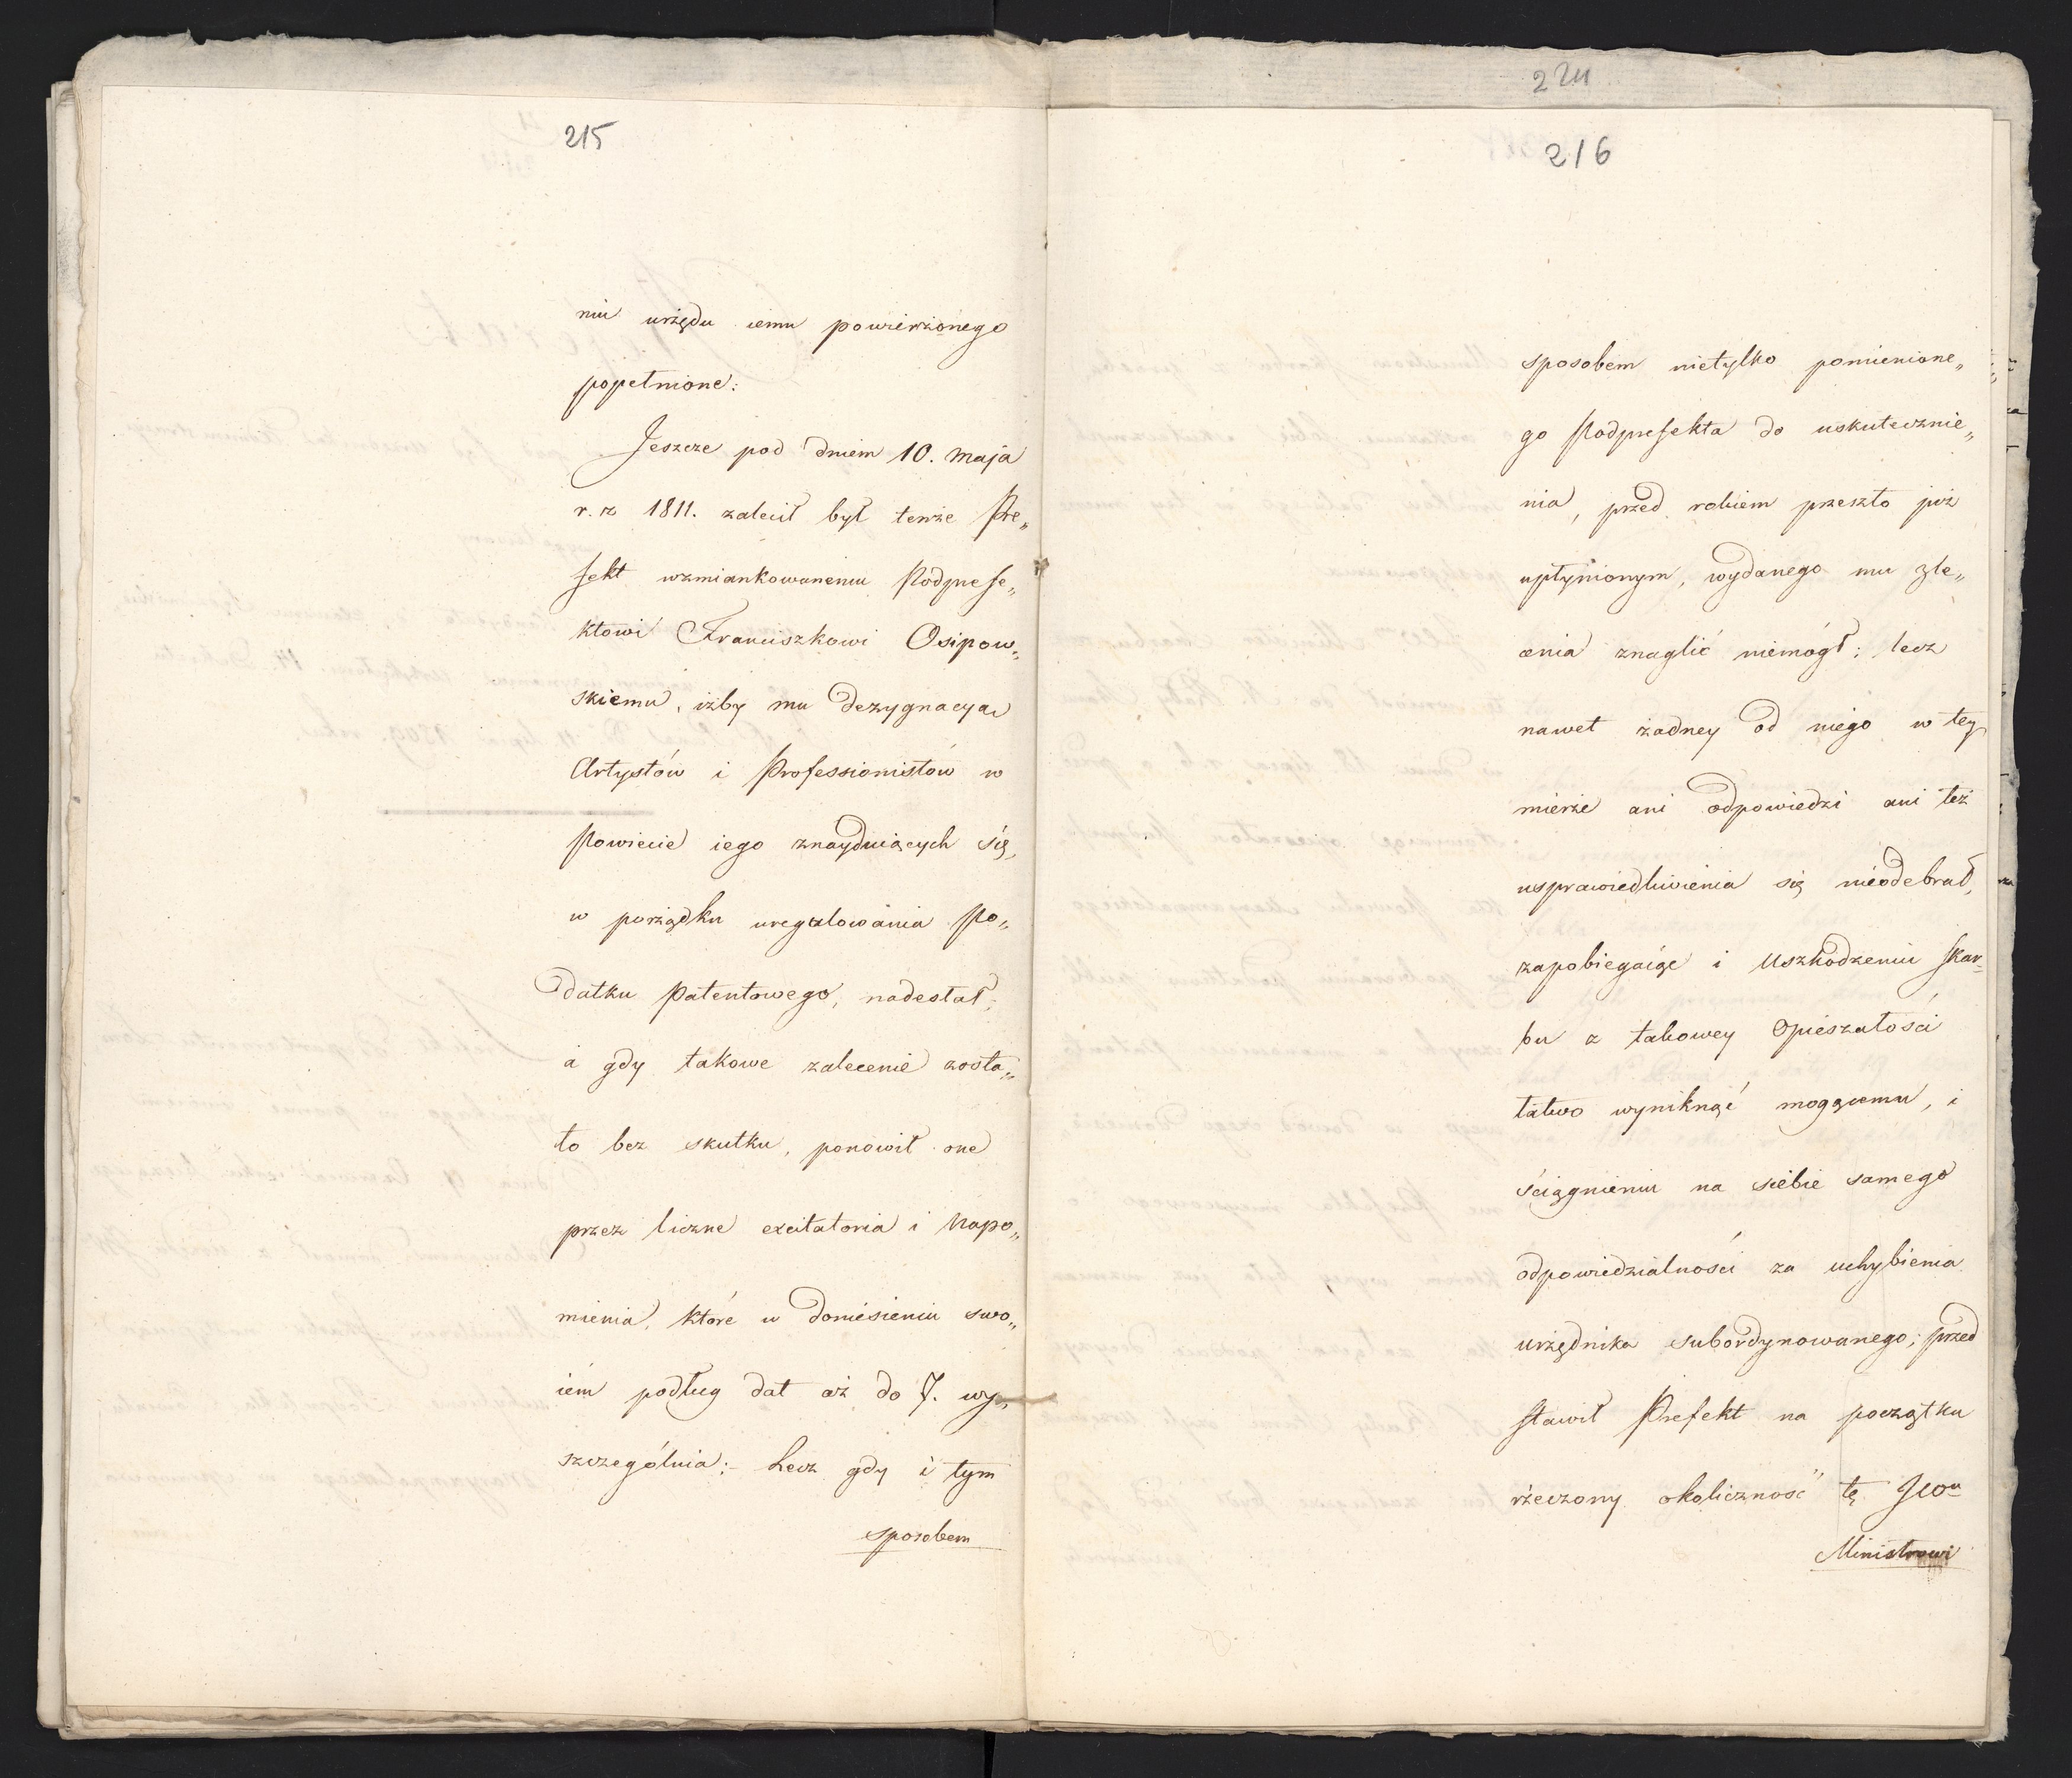 215
niu urzędu iemu powierzonego
popełnione:
Jeszcze pod dniem 10. maja
r. z 1811. zalecił był tenże Pre„
fekt wzmiankowanemu Podprefe„
ktowi Franciszkowi Osipow„
skiemu, iżby mu dezygnacyą
Artystów i Professionistów w
Powiecie iego znayduiących się,
w porządku uregulowania Po„
datku Patentowego, nadesłał;
a gdy takowe zalecenie zosta„
ło bez skutku, ponowił one
przez liczne excitatoria i Napo„
mienia, które w doniesieniu swo„
iem podług dat aż do 7. wy„
szczególnia; - Lecz gdy i tym
sposobem
224
216
sposobem nietylko pomienione„
go Podprefekta do uskutecznie„
nia, przed rokiem przeszło już
upłynionym, wydanego mu zle„
cenia znaglić niemógł; lecz
nawet żadney od niego w tey
mierze ani odpowiedzi ani też
usprawiedliwienia się nieodebrał,
zapobiegaiąc i Uszkodzeniu Skar-
bu z takowey Opieszałości
łatwo wyniknąć mogącemu, i
ściągnieniu na siebie samego
odpowiedzialności za uchybienia
urzędnika subordynowanego; przed
stawił Prefekt na początku
rzeczony okoliczność tę JWu
Ministrowi